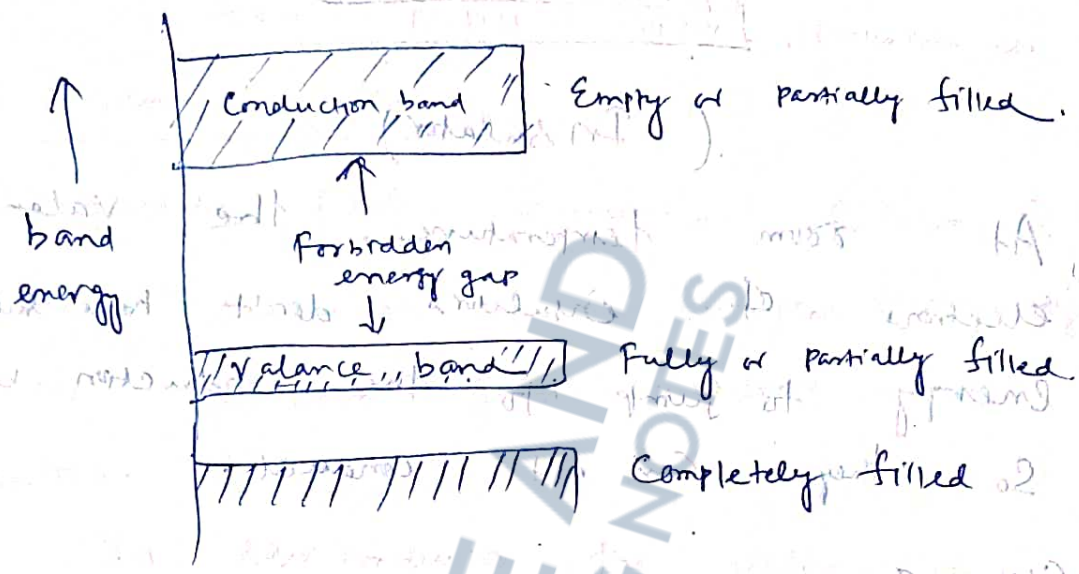 Conduction band
Empty or partially filled.
band
energy
Forbidden
energy gap
Valance band
Fully or partially filled.
Completely filled
AND
NOTES